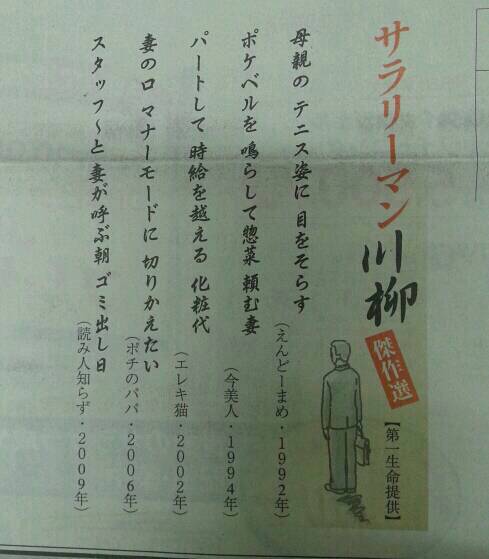 サラリーマン川柳
傑作選
【第一生命提供】
母親の テニス姿に 目をそらす
（えんどーまめ・1992年）
ポケベルを 鳴らして惣菜 頼む妻
（今美人・1994年）
パートして 時給を越える 化粧代
（エレキ猫・2002年）
妻の口 マナーモードに 切りかえたい
（ポチのパパ・2006年）
スタッフ～と 妻が呼ぶ朝 ゴミ出し日
（読み人知らず・2009年）